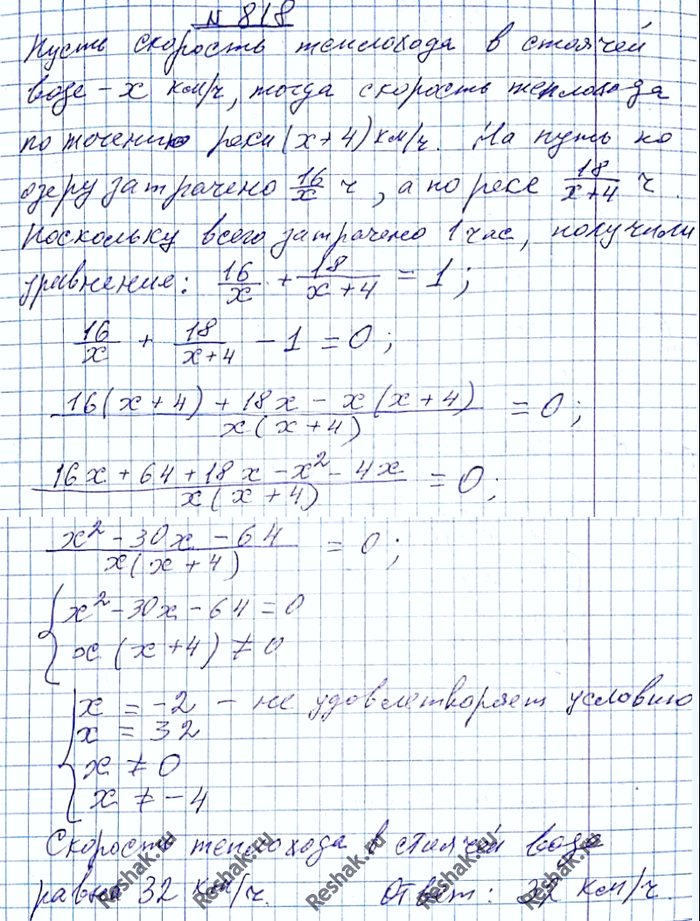 N 818
Пусть скорость теплохода в стоячей
воде - x км/ч, тогда скорость теплохода
по течению реки (x+4) км/ч. На путь по
озеру затрачено 16/x ч, а по реке 18/(x+4) ч.
Поскольку всего затрачено 1 час, получили
уравнение: 16/x + 18/(x+4) = 1;
16/x + 18/(x+4) - 1 = 0;
(16(x+4) + 18x - x(x+4))/(x(x+4)) = 0;
(16x + 64 + 18x - x² - 4x)/(x(x+4)) = 0;
(x² - 30x - 64)/(x(x+4)) = 0;
{ x² - 30x - 64 = 0
x(x+4) ≠ 0
{ x = -2 - не удовлетворяет условию
x = 32
x ≠ 0
x ≠ -4
Скорость теплохода в стоячей воде
равна 32 км/ч. Ответ: 32 км/ч.
Reshak.ru Reshak.ru Reshak.ru Reshak.ru Reshak.ru